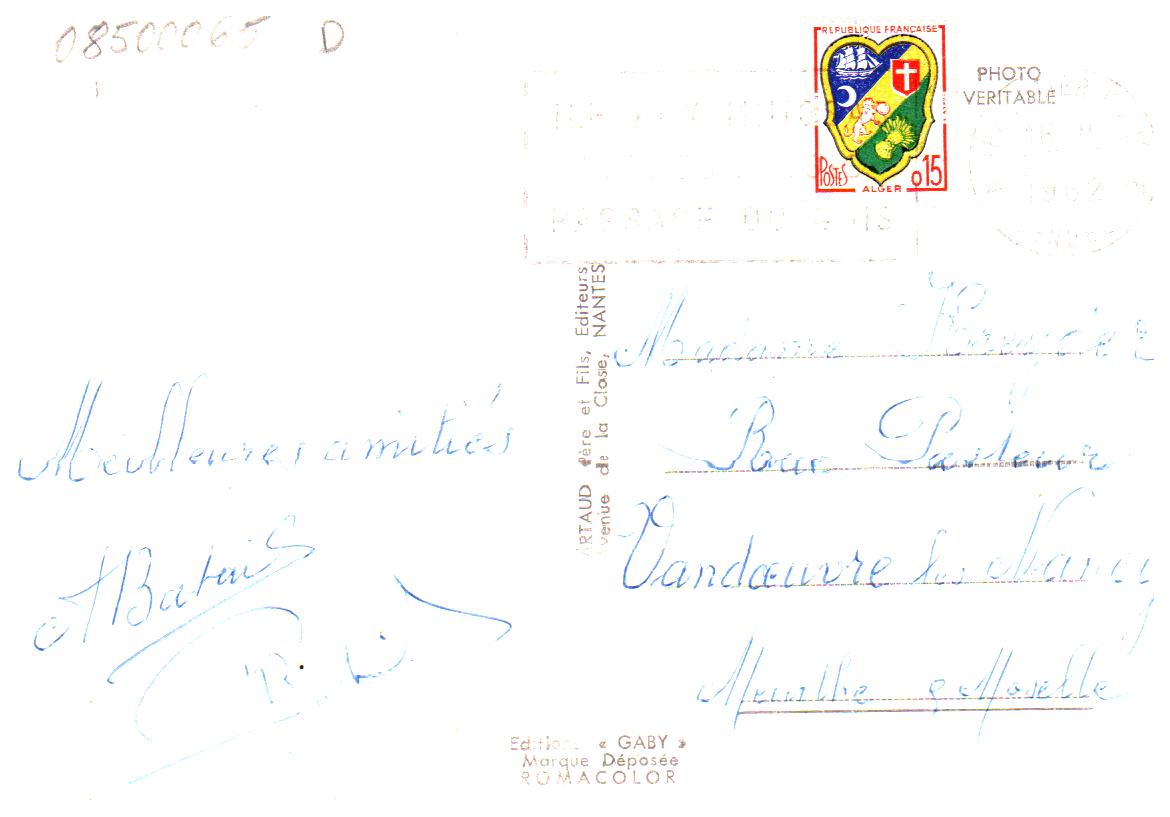 08500065 D
REPUBLIQUE FRANÇAISE
POSTES
0,15
ALGER
PHOTO
VERITABLE
PASSAGE DU
1962
ARTAUD Père et Fils, Editeurs
Avenue de la Close, NANTES
Meilleures amitiés
Madame
Rue Pasteur
Vandœuvre les Nancy
Meurthe & Moselle
Editions « GABY »
Marque Déposée
ROMACOLOR